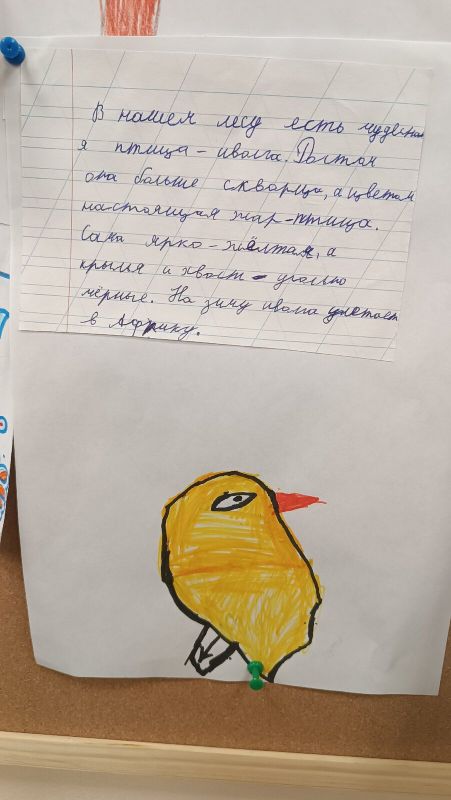 В нашем лесу есть чудесна
я птица - иволга. Ростом
она больше скворца, а цветом
настоящая жар-птица.
Сама ярко-жёлтая, а
крылья и хвост - угольно
чёрные. На зиму иволга улетает
в Африку.